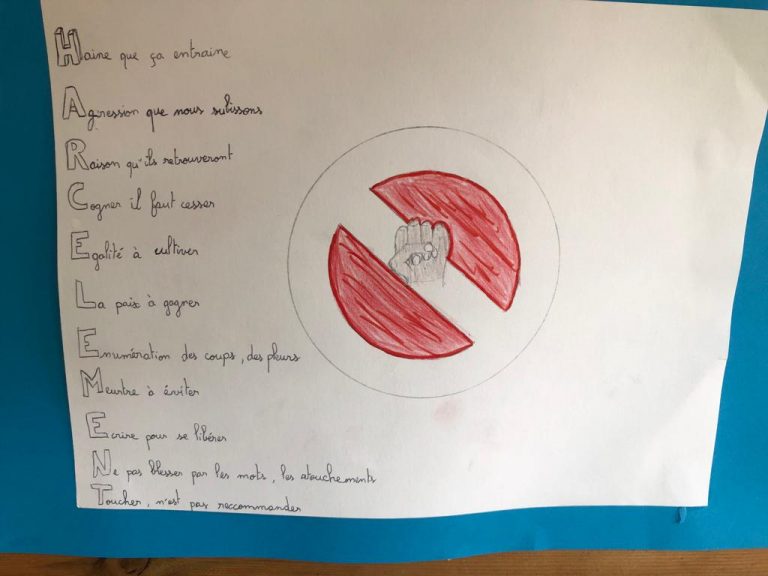 Haine que ça entraine
Agression que nous subissons
Raison qu'ils retrouveront
Cogner il faut cesser
Egalité à cultiver
La paix à gagner
Enumération des coups, des pleurs
Meurtre à éviter
Ecrire pour se libérer
Ne pas blesser par les mots, les atouchements
Toucher, n'est pas reccommander